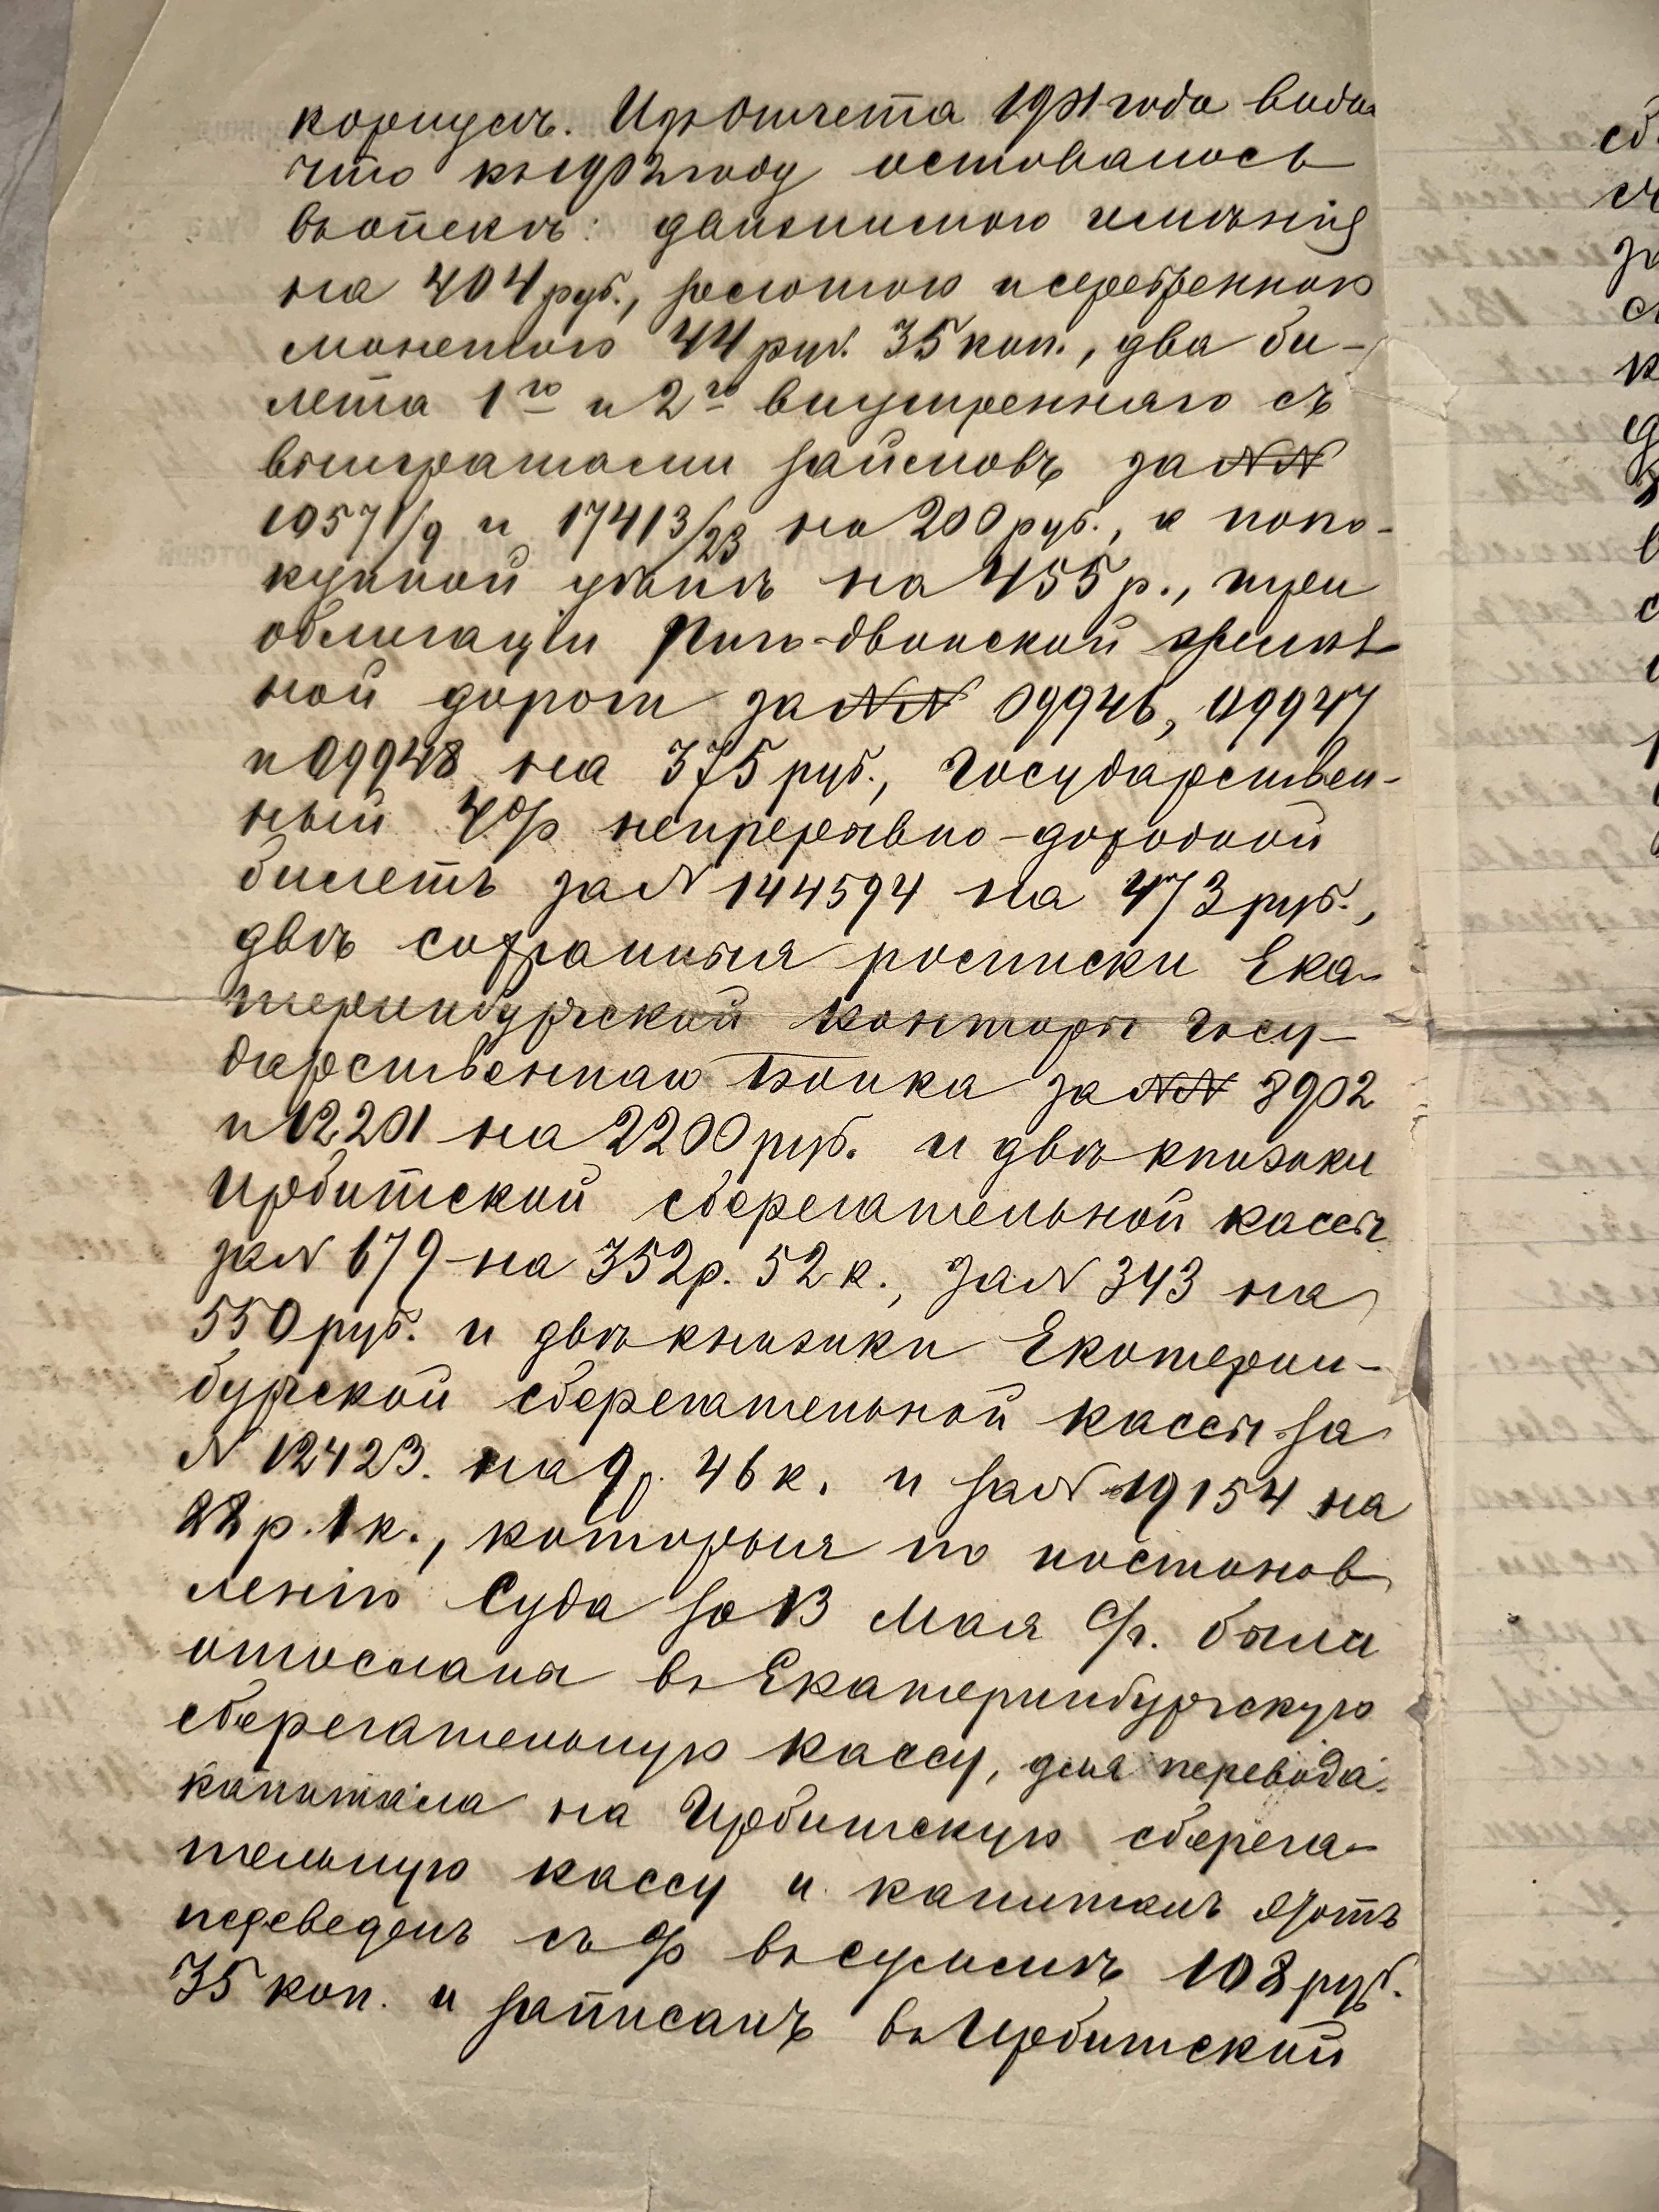 корпусѣ. Изъ Отчета 1901 года видно
что къ 1902 году оставалось
въ опекѣ: движимаго имѣнія
на 404 руб., золотою и серебренною
монетою 44 руб. 35 коп., два би-
лета 1го и 2го внутренняго съ
выигрышами займовъ за №№
10571/9 и 17413/23 на 200 руб., а по по-
купной цѣнѣ на 455 р., три
облигаціи Риго-Двинской желѣз
ной дороги за №№ 09946, 09947
и 09948 на 375 руб., Государствен-
ный 4% непрерывно-доходной
билетъ за № 144594 на 473 руб.,
двѣ сохранныя росписки Ека-
теринбургской Конторы Госу-
дарственнаго Банка за №№ 8902
и 12201 на 2200 руб. и двѣ книжки
Ирбитской сберегательной кассы
за № 679 на 352 р. 52 к., за № 343 на
550 руб. и двѣ книжки Екатерин-
бургской сберегательной кассы за
№ 12423. на 9 р. 46 к. и за № 19154 на
22 р. 1 к., которыя по постанов
ленію Суда за 13 Мая с/г. были
отосланы въ Екатеринбургскую
сберегательную кассу, для перевода
капитала на Ирбитскую сберега-
тельную кассу и капиталъ этотъ
переведенъ съ % въ суммѣ 108 руб.
35 коп. и записанъ въ Ирбитской